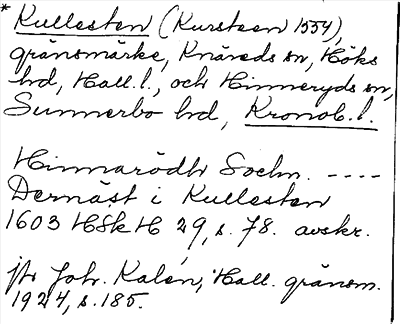 * Kullesten (Kursteen 1554),
gränsmärke, Knäreds sn, Höks
hd, Hall. l., och Hinneryds sn,
Sunnerbo hd, Kronob. l.
Hinnarödh Sochn. ----
Dernäst i Kullesten
1603 HSkH 29, s. 78. avskr.
jfr Joh. Kalén, Hall. gränsm.
1924, s. 185.